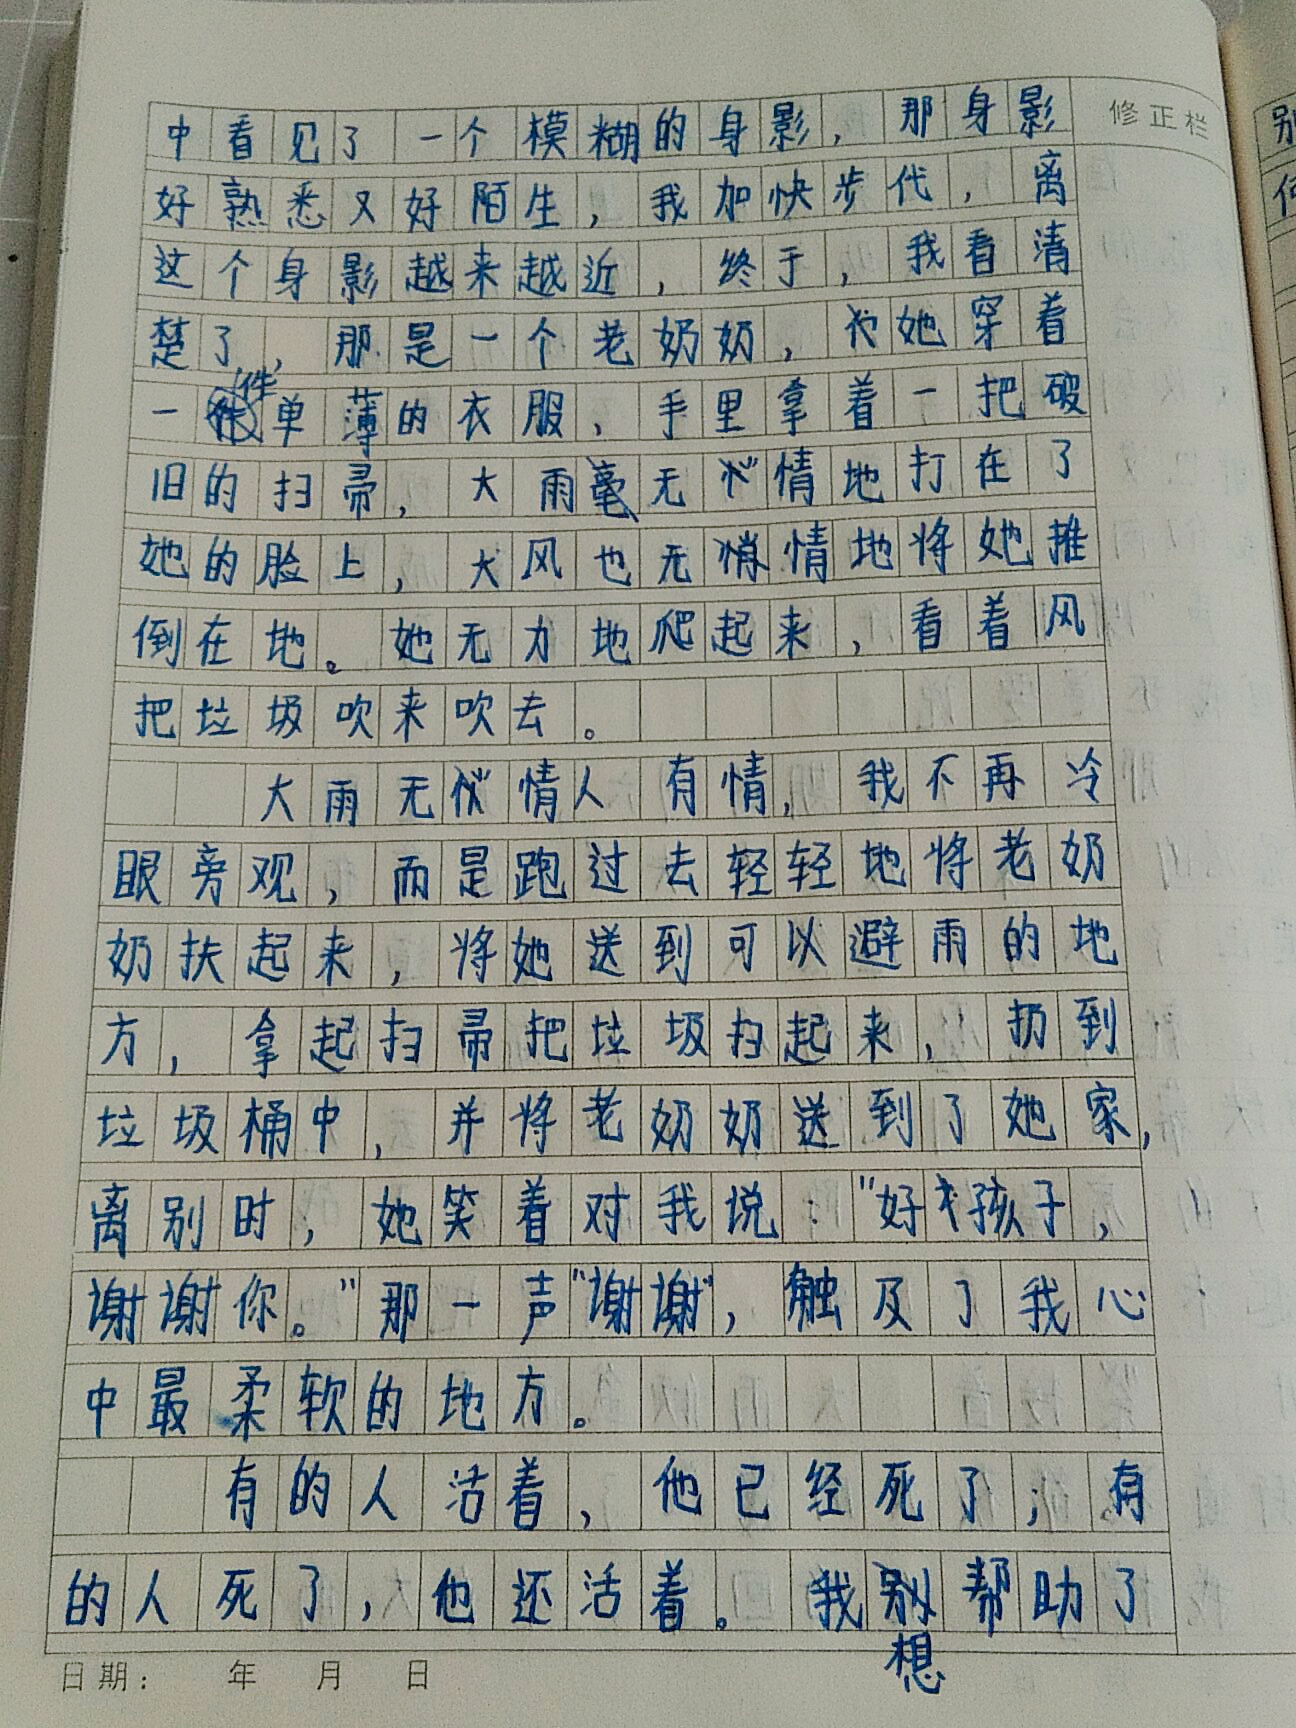 修正栏
中看见了一个模糊的身影，那身影
好熟悉又好陌生，我加快步代，离
这个身影越来越近，终于，我看清
楚了，那是一个老奶奶，她穿着
一件单薄的衣服、手里拿着一把破
旧的扫帚，大雨毫无情地打在了
她的脸上，大风也无情地将她推
倒在地。她无力地爬起来，看着风
把垃圾吹来吹去。
大雨无情人有情，我不再冷
眼旁观，而是跑过去轻轻地将老奶
奶扶起来，将她送到可以避雨的地
方，拿起扫帚把垃圾扫起来，扔到
垃圾桶中，并将老奶奶送到了她家，
离别时，她笑着对我说：“好孩子，
谢谢你。”那一声“谢谢”，触及了我心
中最柔软的地方。
有的人活着，他已经死了；有
的人死了，他还活着。我想帮助了
日期： 年 月 日
别